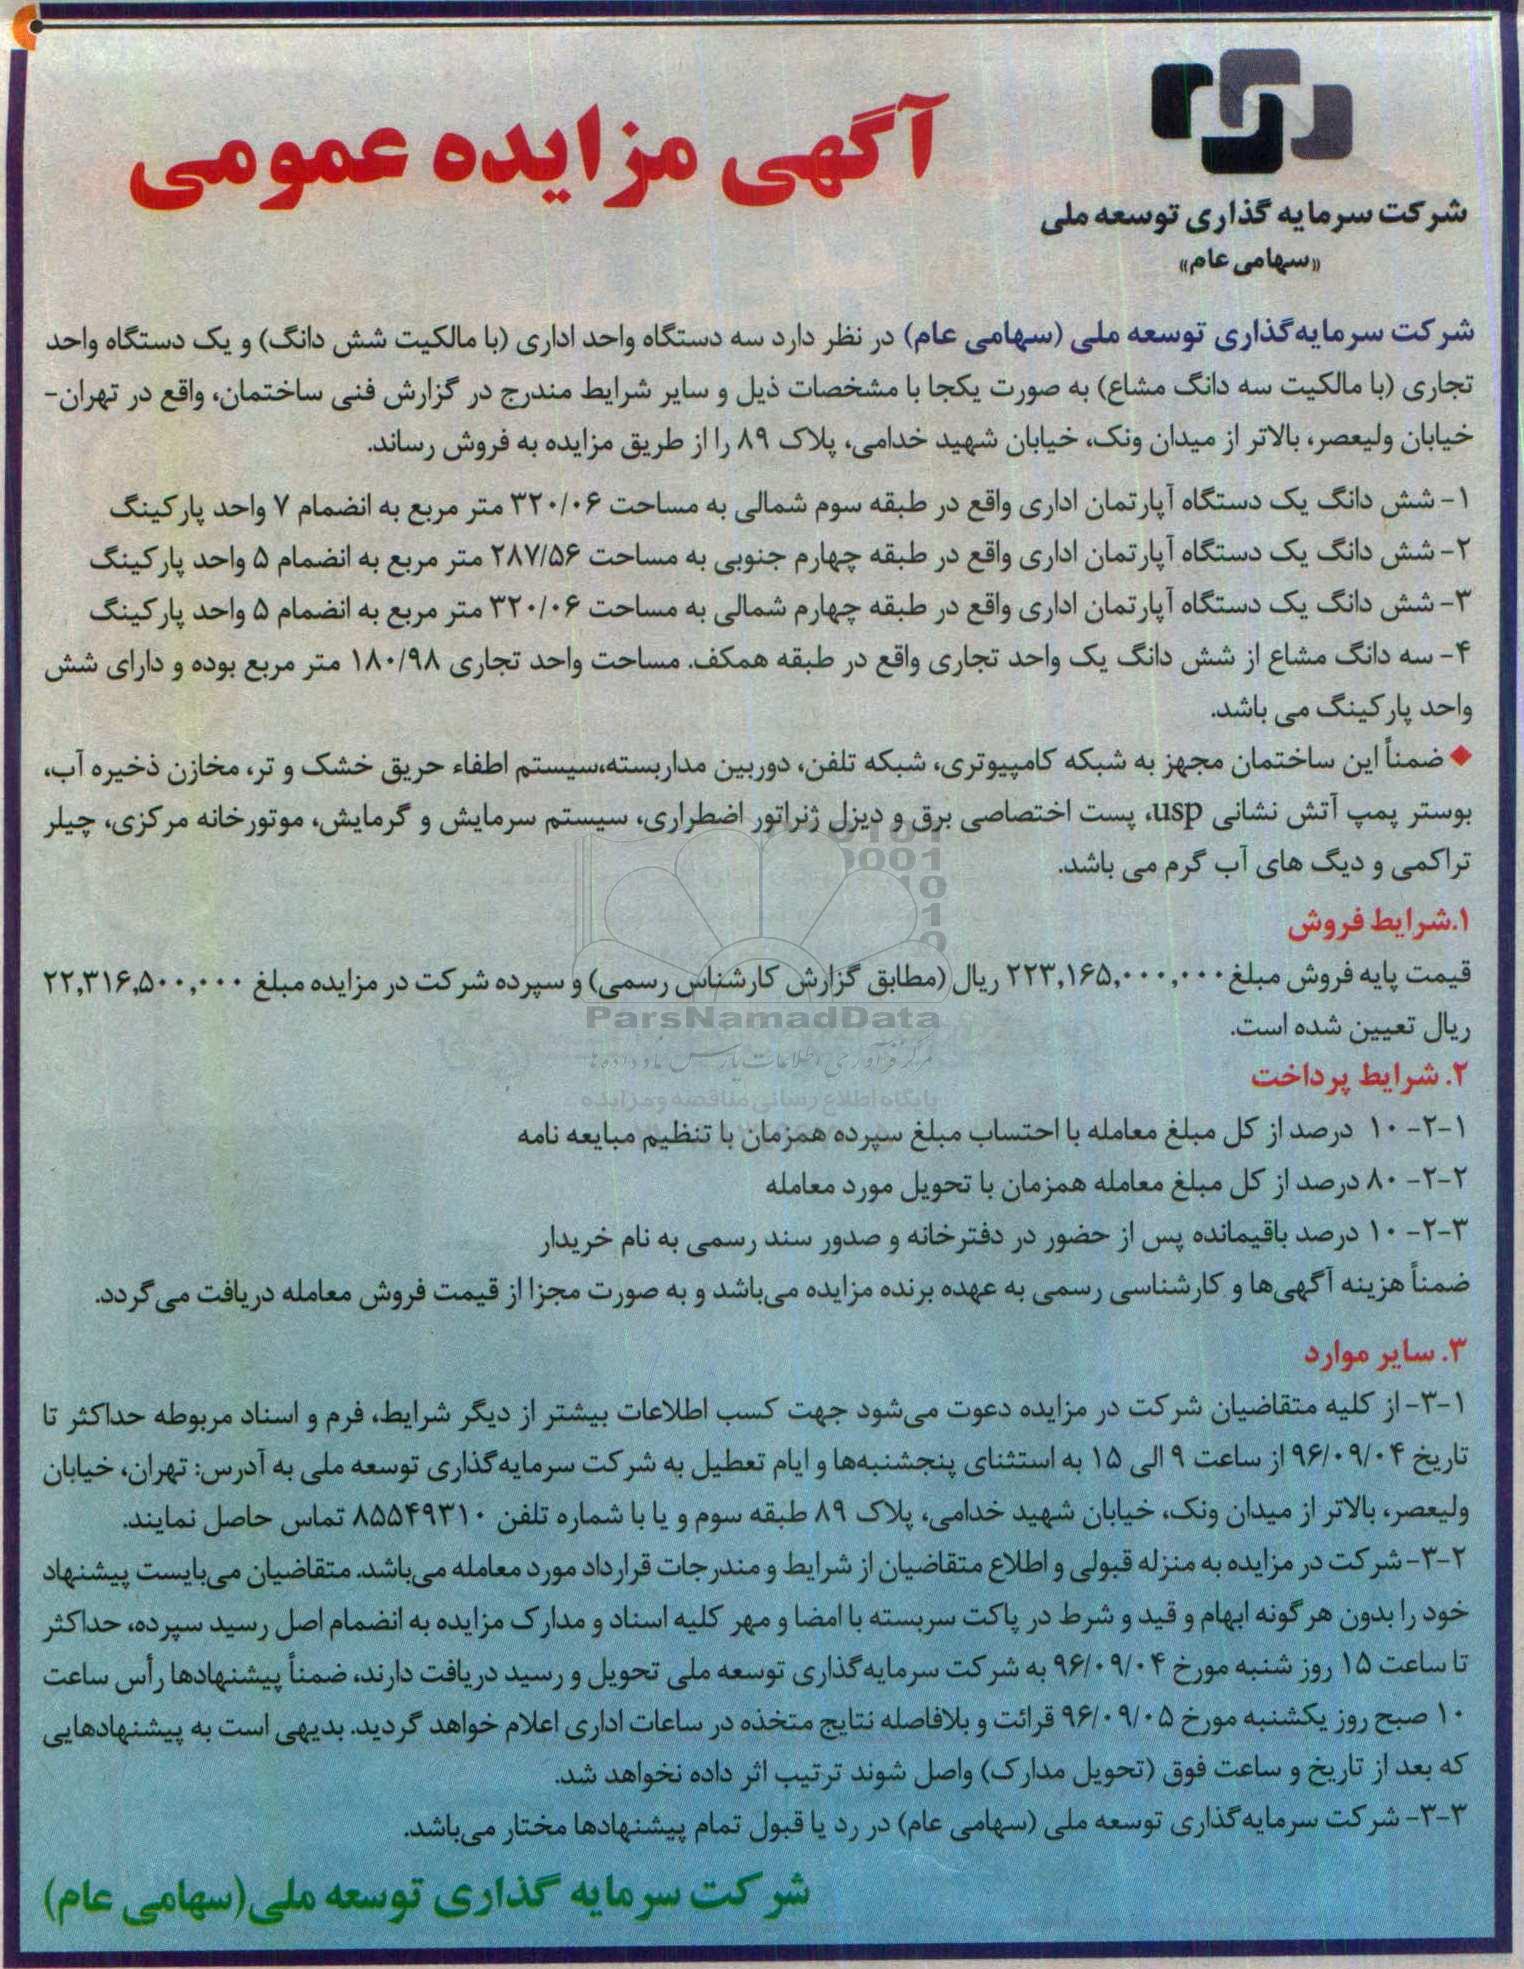 آگهی مزایده عمومی
شرکت سرمایه گذاری توسعه ملی
«سهامی عام»
شرکت سرمایه‌گذاری توسعه ملی (سهامی عام) در نظر دارد سه دستگاه واحد اداری (با مالکیت شش دانگ) و یک دستگاه واحد
تجاری (با مالکیت سه دانگ مشاع) به صورت یکجا با مشخصات ذیل و سایر شرایط مندرج در گزارش فنی ساختمان، واقع در تهران-
خیابان ولیعصر، بالاتر از میدان ونک، خیابان شهید خدامی، پلاک ۸۹ را از طریق مزایده به فروش رساند.
۱- شش دانگ یک دستگاه آپارتمان اداری واقع در طبقه سوم شمالی به مساحت ۳۲۰/۰۶ متر مربع به انضمام ۷ واحد پارکینگ
۲- شش دانگ یک دستگاه آپارتمان اداری واقع در طبقه چهارم جنوبی به مساحت ۲۸۷/۵۶ متر مربع به انضمام ۵ واحد پارکینگ
۳- شش دانگ یک دستگاه آپارتمان اداری واقع در طبقه چهارم شمالی به مساحت ۳۲۰/۰۶ متر مربع به انضمام ۵ واحد پارکینگ
۴- سه دانگ مشاع از شش دانگ یک واحد تجاری واقع در طبقه همکف. مساحت واحد تجاری ۱۸۰/۹۸ متر مربع بوده و دارای شش
واحد پارکینگ می باشد.
◆ ضمناً این ساختمان مجهز به شبکه کامپیوتری، شبکه تلفن، دوربین مداربسته،سیستم اطفاء حریق خشک و تر، مخازن ذخیره آب،
بوستر پمپ آتش نشانی usp، پست اختصاصی برق و دیزل ژنراتور اضطراری، سیستم سرمایش و گرمایش، موتورخانه مرکزی، چیلر
تراکمی و دیگ های آب گرم می باشد.
۱.شرایط فروش
قیمت پایه فروش مبلغ ۲۲۳,۱۶۵,۰۰۰,۰۰۰ ریال (مطابق گزارش کارشناس رسمی) و سپرده شرکت در مزایده مبلغ ۲۲,۳۱۶,۵۰۰,۰۰۰
ریال تعیین شده است.
ParsNamadData
مرکز فرآوری اطلاعات پارس نماد داده ها
پایگاه اطلاع رسانی مناقصه و مزایده
۲. شرایط پرداخت
۲-۱- ۱۰ درصد از کل مبلغ معامله با احتساب مبلغ سپرده همزمان با تنظیم مبایعه نامه
۲-۲- ۸۰ درصد از کل مبلغ معامله همزمان با تحویل مورد معامله
۲-۳- ۱۰ درصد باقیمانده پس از حضور در دفترخانه و صدور سند رسمی به نام خریدار
ضمناً هزینه آگهی‌ها و کارشناسی رسمی به عهده برنده مزایده می‌باشد و به صورت مجزا از قیمت فروش معامله دریافت می‌گردد.
۳. سایر موارد
۳-۱- از کلیه متقاضیان شرکت در مزایده دعوت می‌شود جهت کسب اطلاعات بیشتر از دیگر شرایط، فرم و اسناد مربوطه حداکثر تا
تاریخ ۹۶/۰۹/۰۴ از ساعت ۹ الی ۱۵ به استثنای پنجشنبه‌ها و ایام تعطیل به شرکت سرمایه‌گذاری توسعه ملی به آدرس: تهران، خیابان
ولیعصر، بالاتر از میدان ونک، خیابان شهید خدامی، پلاک ۸۹ طبقه سوم و یا با شماره تلفن ۸۵۵۴۹۳۱۰ تماس حاصل نمایند.
۳-۲- شرکت در مزایده به منزله قبولی و اطلاع متقاضیان از شرایط و مندرجات قرارداد مورد معامله می‌باشد. متقاضیان می‌بایست پیشنهاد
خود را بدون هر گونه ابهام و قید و شرط در پاکت سربسته با امضا و مهر کلیه اسناد و مدارک مزایده به انضمام اصل رسید سپرده، حداکثر
تا ساعت ۱۵ روز شنبه مورخ ۹۶/۰۹/۰۴ به شرکت سرمایه‌گذاری توسعه ملی تحویل و رسید دریافت دارند، ضمناً پیشنهادها رأس ساعت
۱۰ صبح روز یکشنبه مورخ ۹۶/۰۹/۰۵ قرائت و بلافاصله نتایج متخذه در ساعات اداری اعلام خواهد گردید. بدیهی است به پیشنهادهایی
که بعد از تاریخ و ساعت فوق (تحویل مدارک) واصل شوند ترتیب اثر داده نخواهد شد.
۳-۳- شرکت سرمایه‌گذاری توسعه ملی (سهامی عام) در رد یا قبول تمام پیشنهادها مختار می‌باشد.
شرکت سرمایه گذاری توسعه ملی(سهامی عام)